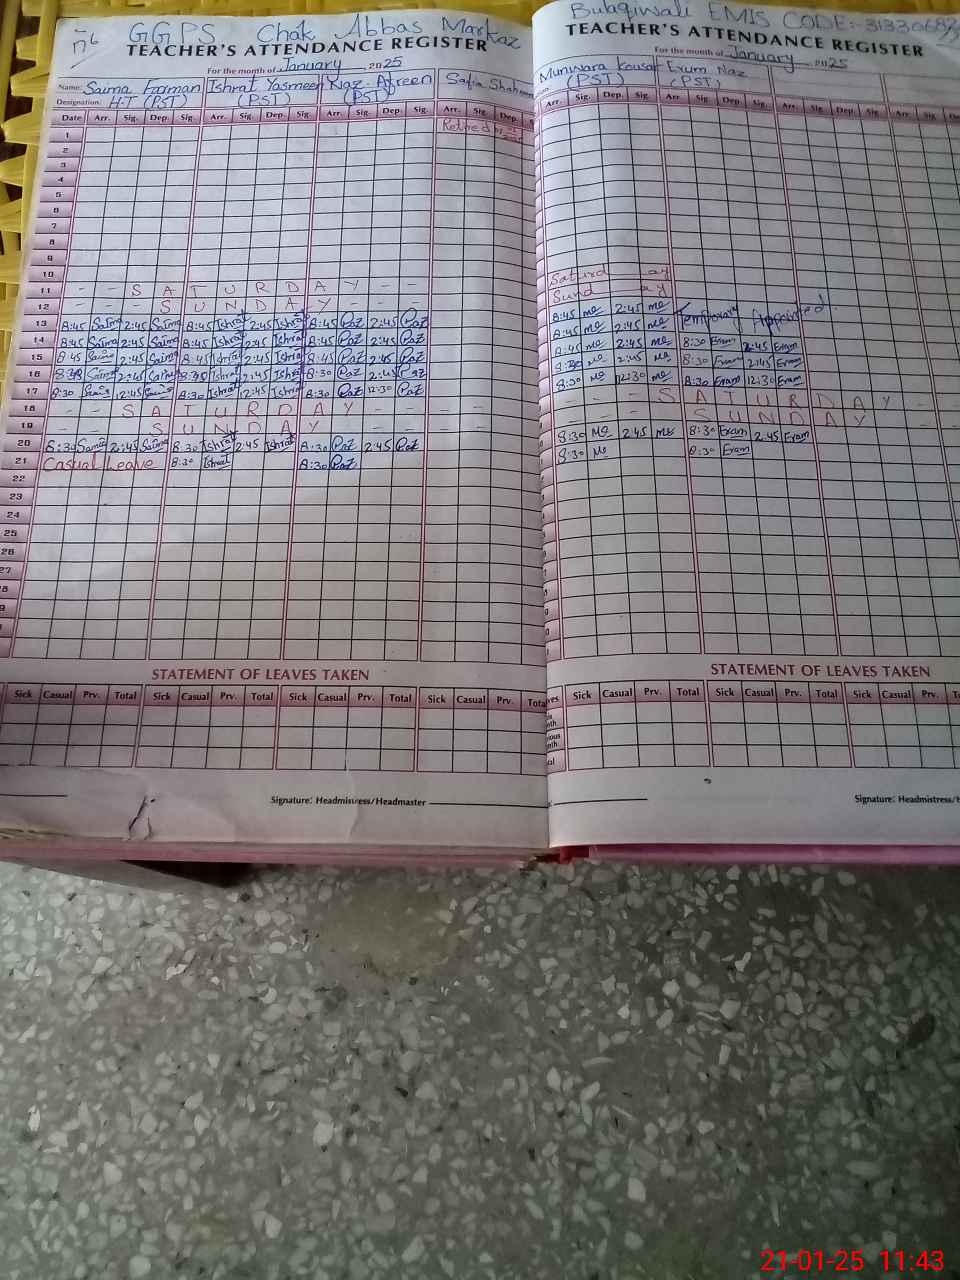 GGPS Chak Abbas Markaz
TEACHER'S ATTENDANCE REGISTER
For the month of January 2025
Name: Saima Farman Ishrat Yasmeen Naz Afreen Safia Shaheen
Designation: H.T (PST) (PST) (PST)
Date Arr. Sig. Dep. Sig. Arr. Sig. Dep. Sig. Arr. Sig. Dep. Sig. Arr. Sig. Dep.
1 Retired
2
3
4
5
6
7
8
9
10
11 - - S A T U R D A Y - - -
12 - - S U N D A Y - - -
13 8:45 Saima 2:45 Saima 8:45 Ishrat 2:45 Ishrat 8:45 2:45
14 8:45 Saima 2:45 Saima 8:45 Ishrat 2:45 Ishrat 8:45 2:45
15 8:45 Saima 2:45 Saima 8:45 Ishrat 2:45 Ishrat 8:45 2:45
16 8:30 Saima 2:45 Saima 8:30 Ishrat 2:45 Ishrat 8:30 2:45
17 8:30 Saima 12:45 Saima 8:30 Ishrat 12:45 Ishrat 8:30 12:30
18 - - S A T U R D A Y - - -
19 - - S U N D A Y - - -
20 8:30 Saima 2:45 Saima 8:30 Ishrat 2:45 Ishrat 8:30 2:45
21 Casual Leave 8:30 Ishrat 8:30
22
23
24
25
26
27
STATEMENT OF LEAVES TAKEN
Sick Casual Prv. Total Sick Casual Prv. Total Sick Casual Prv. Total Sick Casual Prv. Total
Signature: Headmistress/Headmaster
Bulaqiwali EMIS CODE:-
TEACHER'S ATTENDANCE REGISTER
For the month of January 2025
Munwara Kousar Erum Naz
(PST) (PST)
Arr. Sig. Dep. Sig. Arr. Sig. Dep. Sig. Arr. Sig. Dep. Sig. Arr. Sig.
Saturd ay
Sund ay
8:45 2:45 Temporary Appointed
8:45 2:45
8:45 2:45 8:30 Eram 2:45 Eram
8:30 2:45 8:30 Eram 2:45 Eram
8:30 12:30 8:30 Eram 12:30 Eram
- - - S A T U R D A Y - -
- - - S U N D A Y
8:30 2:45 8:30 Eram 2:45 Eram
8:30 8:30 Eram
STATEMENT OF LEAVES TAKEN
Sick Casual Prv. Total Sick Casual Prv. Total Sick Casual
Signature: Headmistress/
21-01-25 11:43